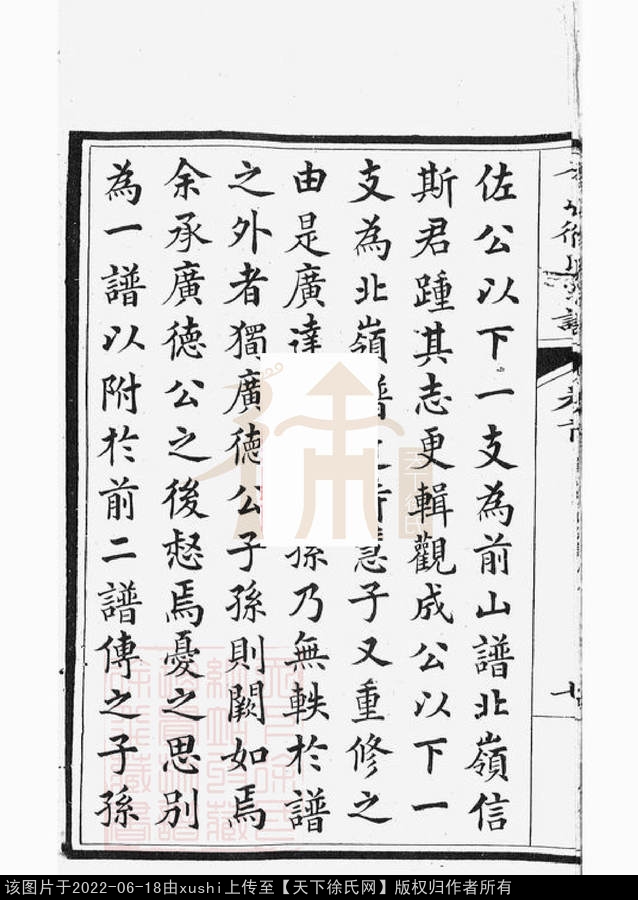 佐公以下一支為前山譜北嶺信
斯君踵其志更輯觀成公以下一
支為北嶺譜慧子又重修之
由是廣達孫乃無軼於譜
之外者獨廣德公子孫則闕如焉
余承廣德公之後惄焉憂之思別
為一譜以附於前二譜傳之子孫
徐
该图片于2022-06-18由xushi上传至【天下徐氏网】版权归作者所有